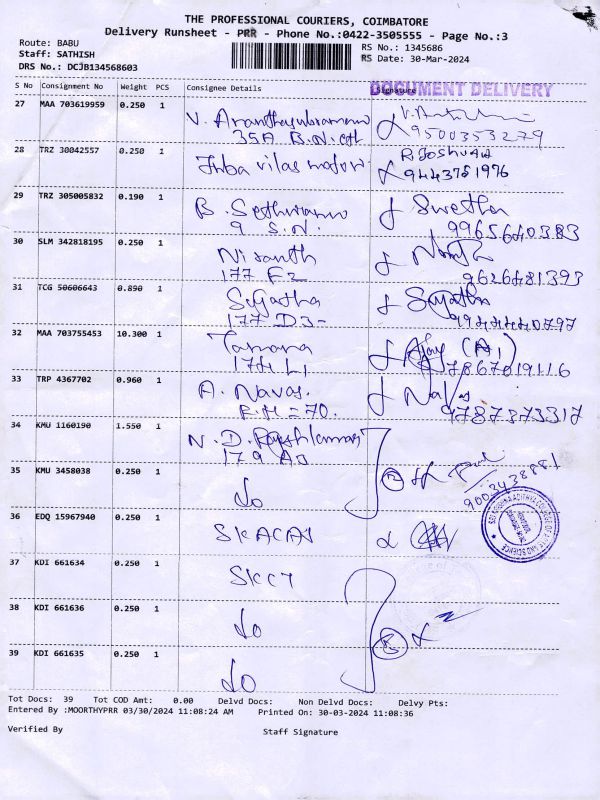 THE PROFESSIONAL COURIERS, COIMBATORE
Delivery Runsheet - PRR - Phone No.:0422-3505555 - Page No.:3
Route: BABU
Staff: SATHISH
DRS No.: DCJB134568603
RS No.: 1345686
RS Date: 30-Mar-2024
DOCUMENT DELIVERY
S No Consignment No Weight PCS Consignee Details Signature
27 MAA 703619959 0.250 1 V.
35A B.N.
9500353279
28 TRZ 30042557 0.250 1 vilas
R. Joshua
9443781976
29 TRZ 305005832 0.190 1 B.
9 S.N.
Swetha
9965640383
30 SLM 342818195 0.250 1 Nisanth
177 F2
9626481393
31 TCG 50606643 0.890 1 Sujatha
177 D3-
Sujatha
9944440797
32 MAA 703755453 10.300 1
174 L1
Ajay (A1)
7867019116
33 TRP 4367702 0.960 1 A. Navas.
R.H = 70.
Navas
9787373317
34 KMU 1160190 1.550 1 N. D.
179 A3
35 KMU 3458038 0.250 1 do
2
9003438881
36 EDQ 15967940 0.250 1 SKACAS
37 KDI 661634 0.250 1 SKCT
38 KDI 661636 0.250 1 do
39 KDI 661635 0.250 1 do
Tot Docs: 39 Tot COD Amt: 0.00 Delvd Docs: Non Delvd Docs: Delvy Pts:
Entered By :MOORTHYPRR 03/30/2024 11:08:24 AM Printed On: 30-03-2024 11:08:36
Verified By Staff Signature